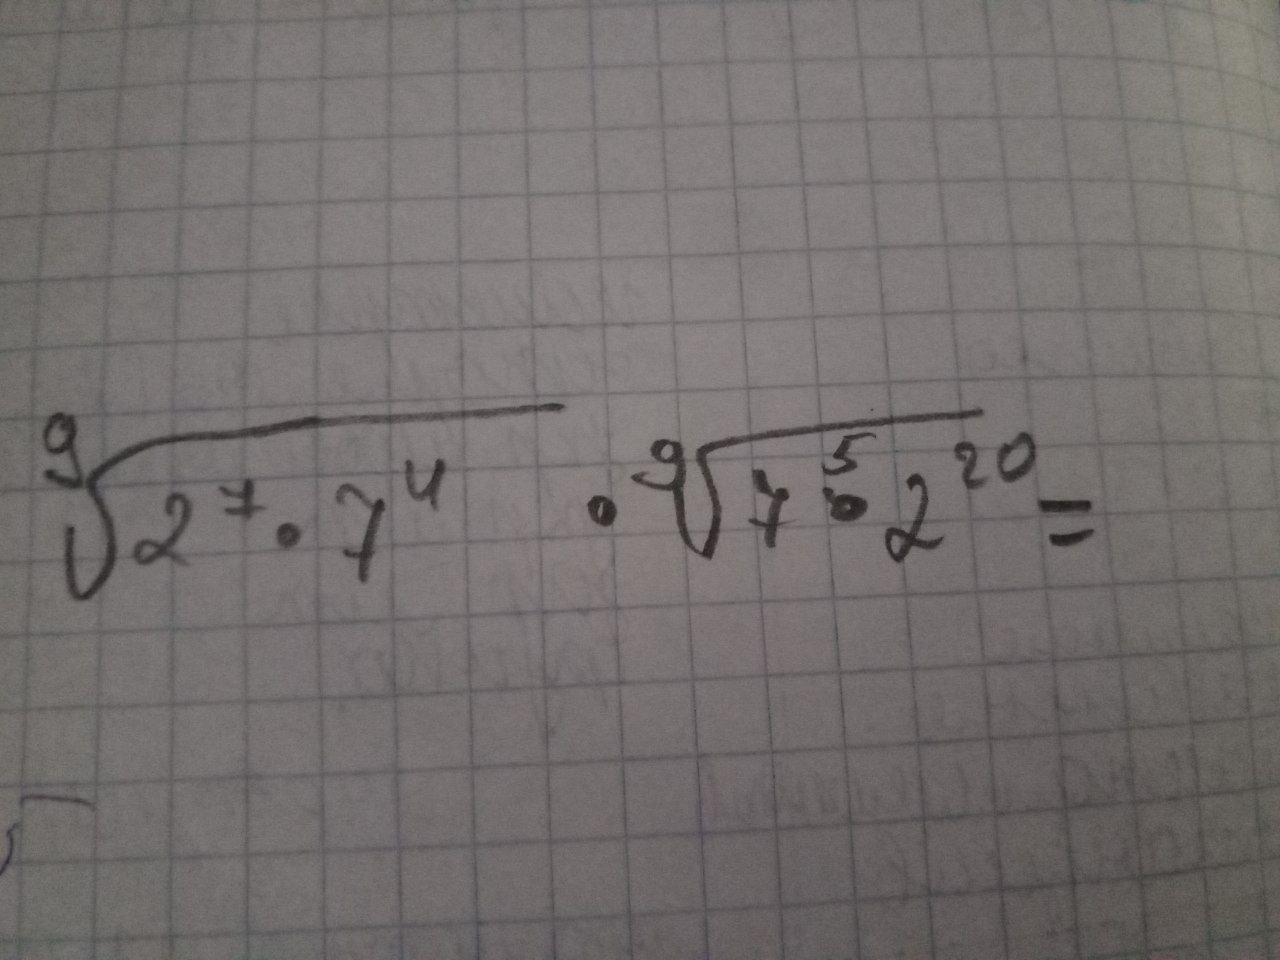 ⁹√(2⁷ · 7⁴) · ⁹√(7⁵ · 2²⁰) =